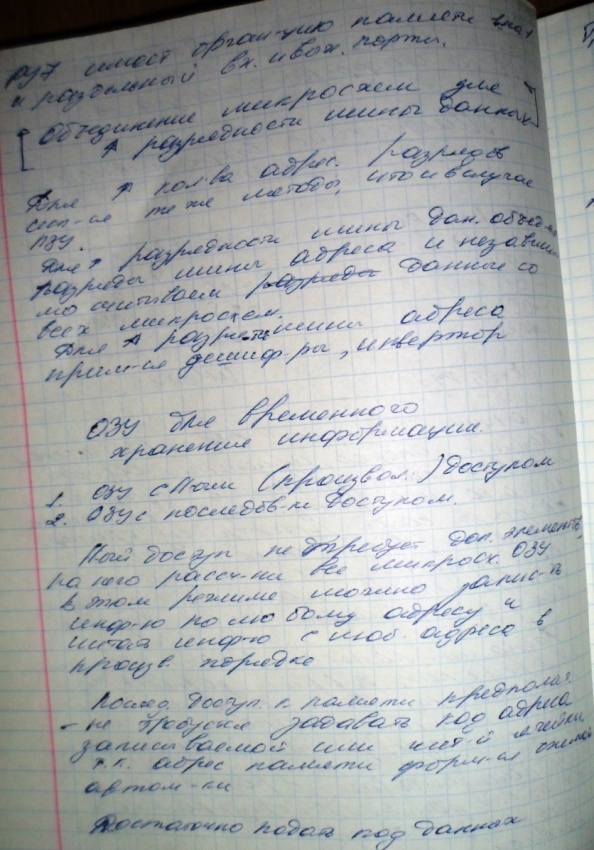 РУ7 имеет орган-цию памяти
и раздельный вх. и вых. порты.
[Объединение микросхем для
↑ разрядности шины данных]
Для ↑ кол-ва адрес. разрядов
исп-ся те же методы, что и в случае
ПЗУ.
Для ↑ разрядности шины дан. объед-
разряды шины адреса и независи
мо считываем разряды данные со
всех микросхем.
Для ↑ разряд шины адреса
прим-ся дешиф-ры, инвертор
ОЗУ для временного
хранения информации.
1. ОЗУ с П-ным (произвол.) доступом
2. ОЗУ с последов-м доступом.
П-ный доступ не требует доп. элементов
на него рассч-ны все микросх. ОЗУ
В этом режиме можно запис-ть
инф-ю по любому адресу и
читать инф-ю с люб. адреса в
произв. порядке
Послед. доступ к памяти предполаг.
- не требуется задавать код адреса
записываемой или чит-й ячейки
т.к. адрес памяти форм-ся
автом-ки
Достаточно подать код данных